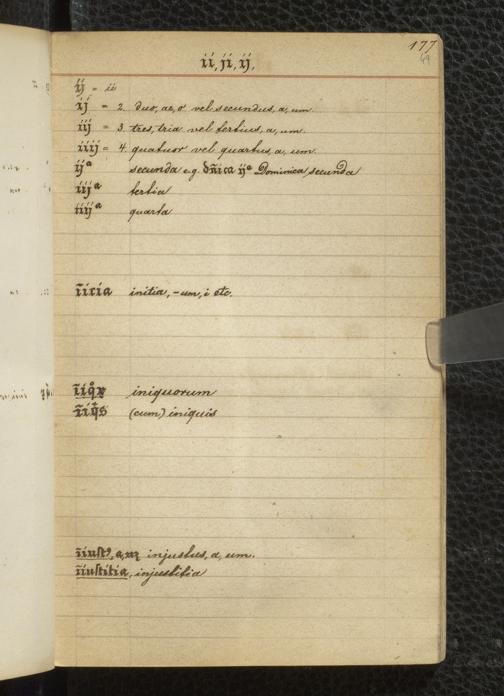 177
49
ii, ji, ij.
ij = ii
ij = 2. duo, ae, o vel secundus, a, um.
iij = 3. tres, tria vel tertius, a, um.
iiij = 4. quatuor vel quartus, a, um.
ijª secunda e.g. dñica ijª Dominica secunda
iijª tertia
iiijª quarta
ĩicia initia, -um, i etc.
iniquorum
(cum) iniquis
injustus, a, um.
ĩiustitia, injustitia